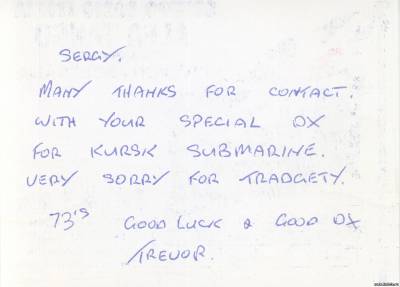 SERGY.
MANY THANKS FOR CONTACT.
WITH YOUR SPECIAL DX
FOR KURSK SUBMARINE.
VERY SORRY FOR TRADGETY.
73'S GOOD LUCK & GOOD DX
TREVOR.